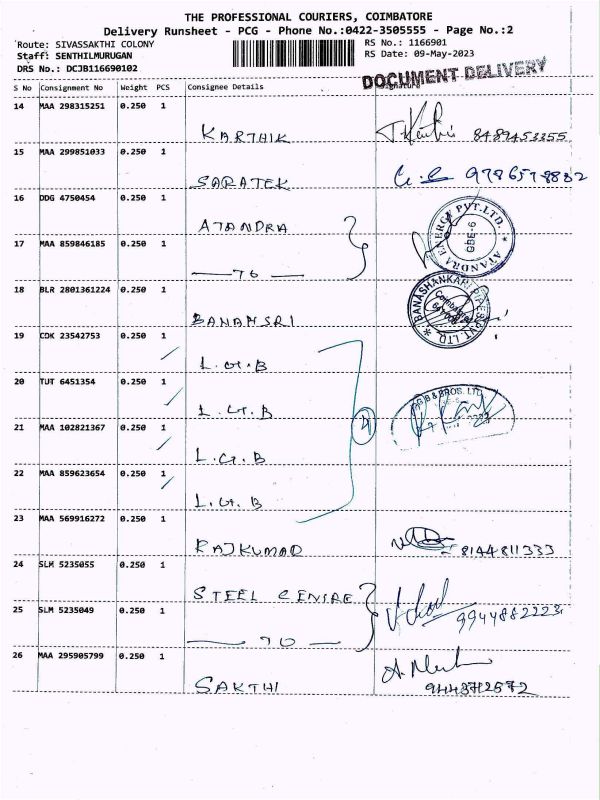 THE PROFESSIONAL COURIERS, COIMBATORE
Delivery Runsheet - PCG - Phone No.:0422-3505555 - Page No.:2
Route: SIVASSAKTHI COLONY RS No.: 1166901
Staff: SENTHILMURUGAN RS Date: 09-May-2023
DRS No.: DCJB116690102 DOCUMENT DELIVERY
S No Consignment No Weight PCS Consignee Details Signature
14 MAA 298315251 0.250 1
KARTHIK 8489453355
15 MAA 299851033 0.250 1
SARATEK 9786578882
16 DDG 4750454 0.250 1
ATANDRA ATANDRA ENERGY PVT.LTD. GBE-6
17 MAA 859846185 0.250 1
70
18 BLR 2801361224 0.250 1
BANANSRI BANASHANKARI PVT.LTD.
19 CDK 23542753 0.250 1
L.G.B
20 TUT 6451354 0.250 1
L.G.B & BROS. LTD.
21 MAA 102821367 0.250 1
L.G.B
22 MAA 859623654 0.250 1
L.G.B
23 MAA 569916272 0.250 1
RAJKUMAR 8144811333
24 SLM 5235055 0.250 1
STEEL CENTRE
25 SLM 5235049 0.250 1
70 9944882223
26 MAA 295905799 0.250 1
SAKTHI 9443712572